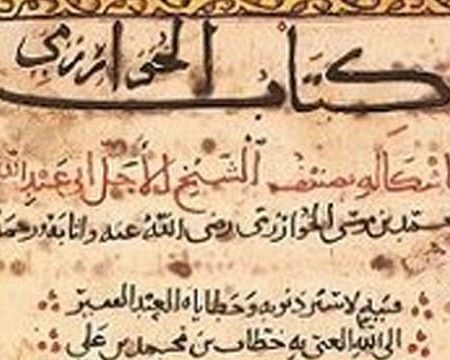 كتاب الخوارزمي
اشكاله وتصنيف الشيخ الأجل ابي عبد الله
محمد بن موسى الخوارزمي رضي الله عنه وأثابه ورحمه
ذنوبه وخطاياه العبد الفقير
الى الله الغني به خطاب بن محمد بن علي